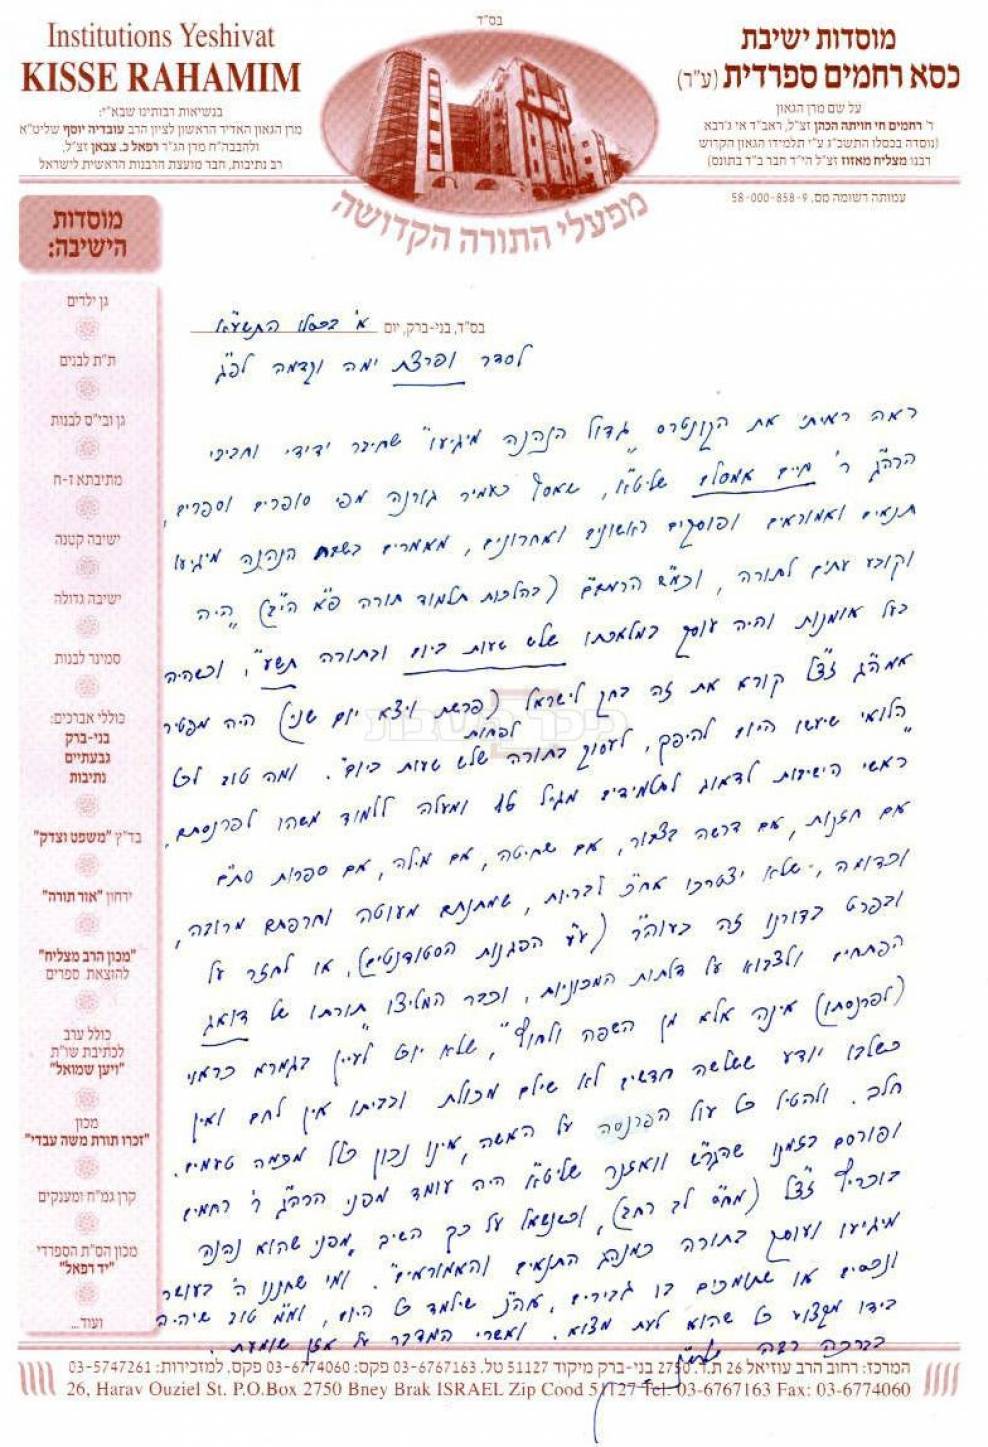 בס"ד
Institutions Yeshivat
KISSE RAHAMIM
בנשיאות רבותינו שבא"י:
מרן הגאון האדיר הראשון לציון הרב עובדיה יוסף שליט"א
ולהבבה"ח מרן הגר' רפאל כ. צבאן זצ"ל,
רב נתיבות, חבר מועצת הרבנות הראשית לישראל
מוסדות ישיבת
כסא רחמים ספרדית (ע"ר)
על שם מרן הגאון
ר' רחמים חי חויתה הכהן זצ"ל, ראב"ד אי ג'רבא
(נוסדה בכסלו התשכ"ג ע"י תלמידו הגאון הקדוש
רבנו מצליח מאזוז זצ"ל הי"ד חבר ב"ד בתונס)
עמותה רשומה מס. 58-000-858-9
מפעלי התורה הקדושה
מוסדות
הישיבה:
גן ילדים
ת"ת לבנים
גן ובי"ס לבנות
מתיבתא ז-ח
ישיבה קטנה
ישיבה גדולה
סמינר לבנות
כוללי אברכים:
בני-ברק
גבעתיים
נתיבות
בד"ץ "משפט וצדק"
ירחון "אור תורה"
"מכון הרב מצליח"
להוצאת ספרים
כולל ערב
לכתיבת שו"ת
"ויען שמואל"
מכון
"זכרו תורת משה עבדי"
קרן גמ"ח ומענקים
מכון הס"ת הספרדי
"יד רפאל"
ועוד...
בס"ד, בני-ברק, יום א' בכסלו התשע"א
לסדר ופרצת ימה וקדמה לפ"ג
ראה ראיתי את הקונטרס "גדול הנהנה מיגיעו" שחיבר ידידי וחביבי
הרה"ג ר' חיים אמסלם שליט"א, שאסף כעמיר גורנה מפי סופרים וספרים,
תנאים ואמוראים ופוסקים ראשונים ואחרונים, מאמרים בשבח הנהנה מיגיעו
וקובע עתים לתורה, וכמ"ש הרמב"ם (בהלכות תלמוד תורה פ"א הי"ב) "היה
בעל אומנות והיה עוסק במלאכתו שלש שעות ביום ובתורה תשע", וכשהיה
אמה"ג זצ"ל קורא את זה בחק לישראל (פרשת ויצא יום שני) היה מפטיר
"הלואי שיעשו היום להיפך, לעסוק בתורה לפחות שלש שעות ביום". ומה טוב לכל
ראשי הישיבות לדאוג לתלמידים מגיל 16 ומעלה ללמוד משהו לפרנסתם,
אם חזנות, אם דרשה בצבור, אם שחיטה, אם מילה, אם ספרות סת"ם
וכדומה, שלא יצטרכו אח"כ לבריות, שמתנתם מעוטה וחרפתם מרובה,
ובפרט בדורנו זה בעוה"ר (ע"ע הפגנות הסטודנטים), או לחזר על
הפתחים ולצבוא על דלתות המכוניות, וכבר המליצו "תורתו של דואג
(לפרנסתו) אינה אלא מן השפה ולחוץ", שלא יוכל לעיין בגמרא כראוי
כשלבו יודע ששלשה חדשים לא שילם מכולת ובביתו אין לחם ואין
חלב. ולהטיל כל עול הפרנסה על האשה, אינו נכון כלל מכמה טעמים.
ופורסם בזמנו שהגר"ש וואזנר שליט"א היה עומד מפני הרה"ג ר' רחמים
בוכריץ זצ"ל (מח"ס לב רחב), וכשנשאל על כך השיב "מפני שהוא נהנה
מיגיעו ועוסק בתורה כמנהג התנאים והאמוראים". ומי שחננו ה' בעושר
ונכסים או שתומכים בו גבירים, אה"נ שילמד כל היום, ומ"מ טוב שיהיה
בידו מקצוע כל שהוא לעת מצוא. ואשרי המדבר על אזן שומעת.
בברכה רבה
המרכז: רחוב הרב עוזיאל 26 ת.ד. 2750 בני-ברק מיקוד 51127 טל. 03-6767163 פקס: 03-6774060 פקס, למזכירות: 03-5747261
26, Harav Ouziel St. P.O.Box 2750 Bney Brak ISRAEL Zip Cood 51127 Tel: 03-6767163 Fax: 03-6774060